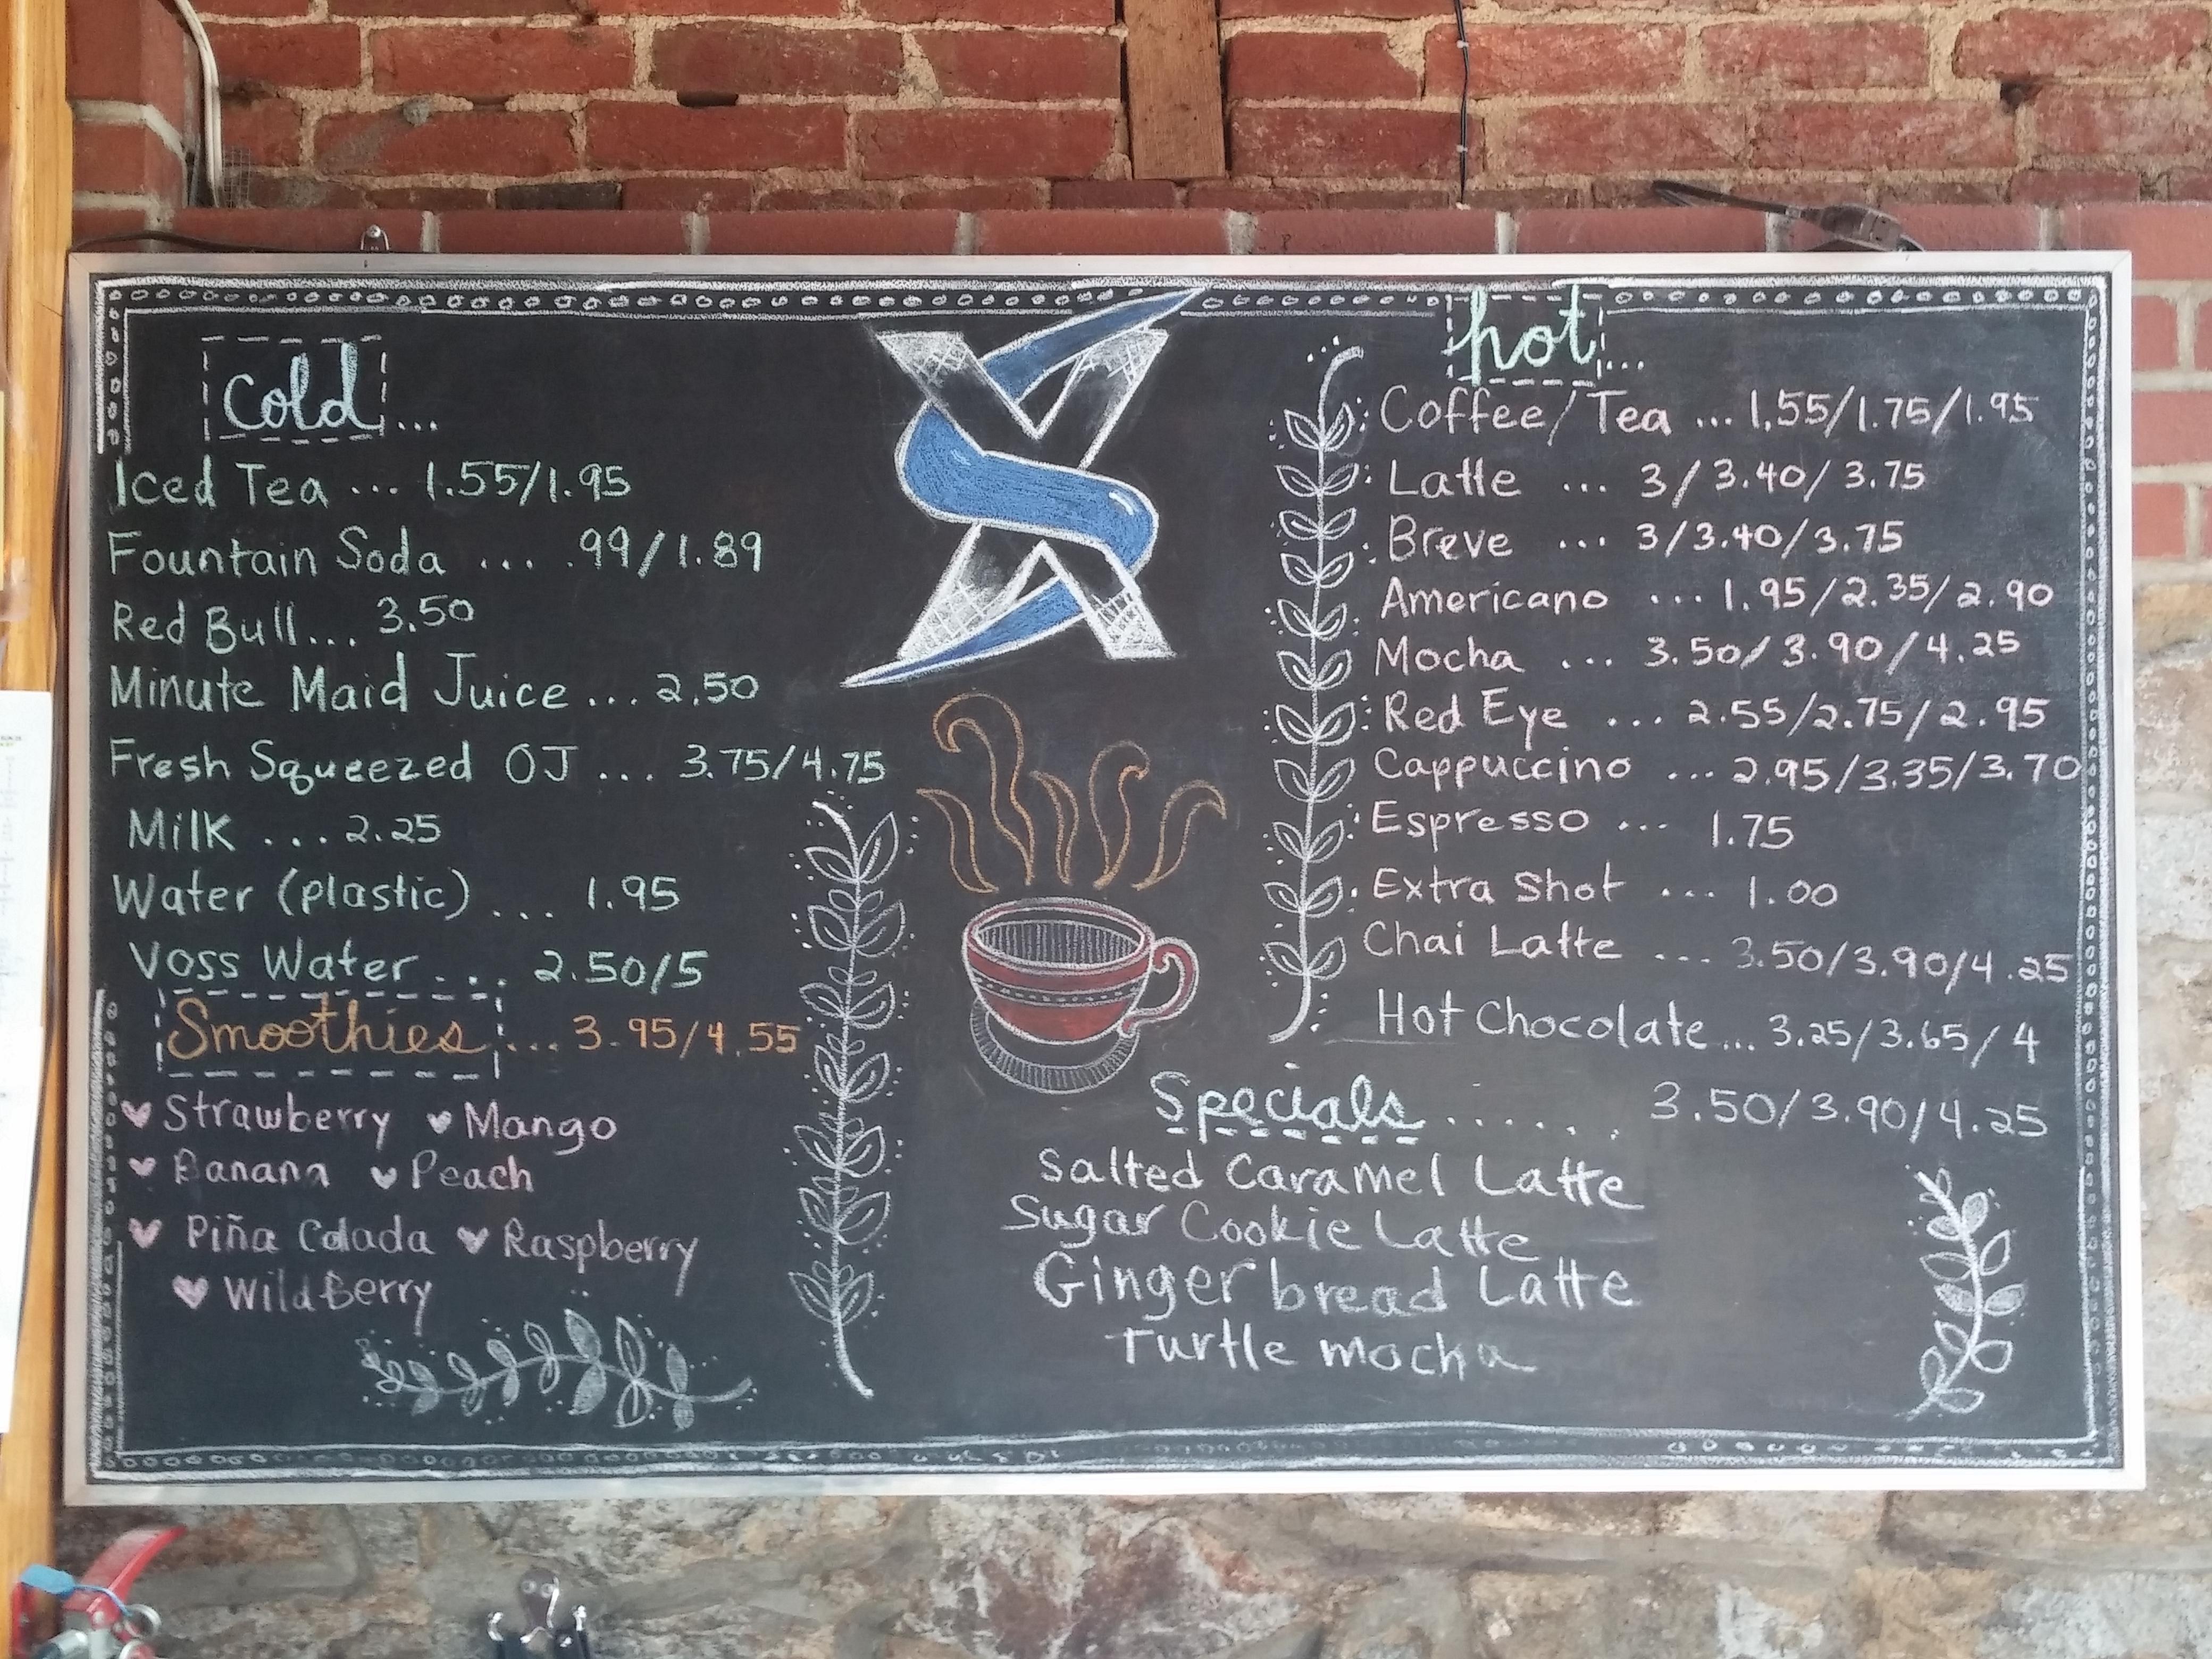 Cold...
Iced Tea ... 1.55/1.95
Fountain Soda .... .99/1.89
Red Bull... 3.50
Minute Maid Juice ... 2.50
Fresh Squeezed OJ ... 3.75/4.75
Milk ... 2.25
Water (plastic) ... 1.95
Voss Water ... 2.50/5
Smoothies ... 3.95/4.55
Strawberry Mango
Banana Peach
Piña Colada Raspberry
WildBerry
hot...
Coffee/Tea ... 1.55/1.75/1.95
Latte ... 3/3.40/3.75
Breve ... 3/3.40/3.75
Americano ... 1.95/2.35/2.90
Mocha ... 3.50/3.90/4.25
Red Eye ... 2.55/2.75/2.95
Cappuccino ... 2.95/3.35/3.70
Espresso ... 1.75
Extra Shot ... 1.00
Chai Latte ... 3.50/3.90/4.25
Hot Chocolate... 3.25/3.65/4
Specials ...... 3.50/3.90/4.25
Salted Caramel Latte
Sugar Cookie Latte
Ginger bread Latte
Turtle mocha